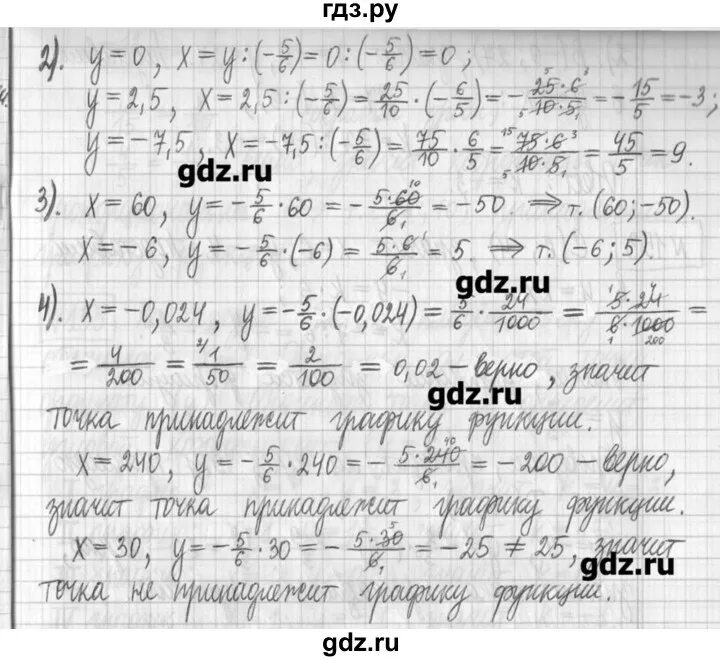 гдз.ру
2). y = 0, x = y : (-5/6) = 0 : (-5/6) = 0;
y = 2,5, x = 2,5 : (-5/6) = 25/10 · (-6/5) = - 25·6/10·5 = -15/5 = -3;
y = -7,5, x = -7,5 : (-5/6) = 75/10 · 6/5 = 75·6/10·5 = 45/5 = 9.
gdz.ru
3). x = 60, y = -5/6 · 60 = - 5·60/6 = -50. ⇒ т. (60; -50).
x = -6, y = -5/6 · (-6) = 5·6/6 = 5. ⇒ т. (-6; 5).
gdz.ru
4). x = -0,024, y = -5/6 · (-0,024) = 5/6 · 24/1000 = 5·24/6·1000 =
= 4/200 = 1/50 = 2/100 = 0,02 - верно, значит
gdz.ru
точка принадлежит графику функции.
x = 240, y = -5/6 · 240 = - 5·240/6 = -200 - верно,
значит точка принадлежит графику функции.
x = 30, y = -5/6 · 30 = - 5·30/6 = -25 ≠ 25, значит
gdz.ru
точка не принадлежит графику функции.
gdz.ru